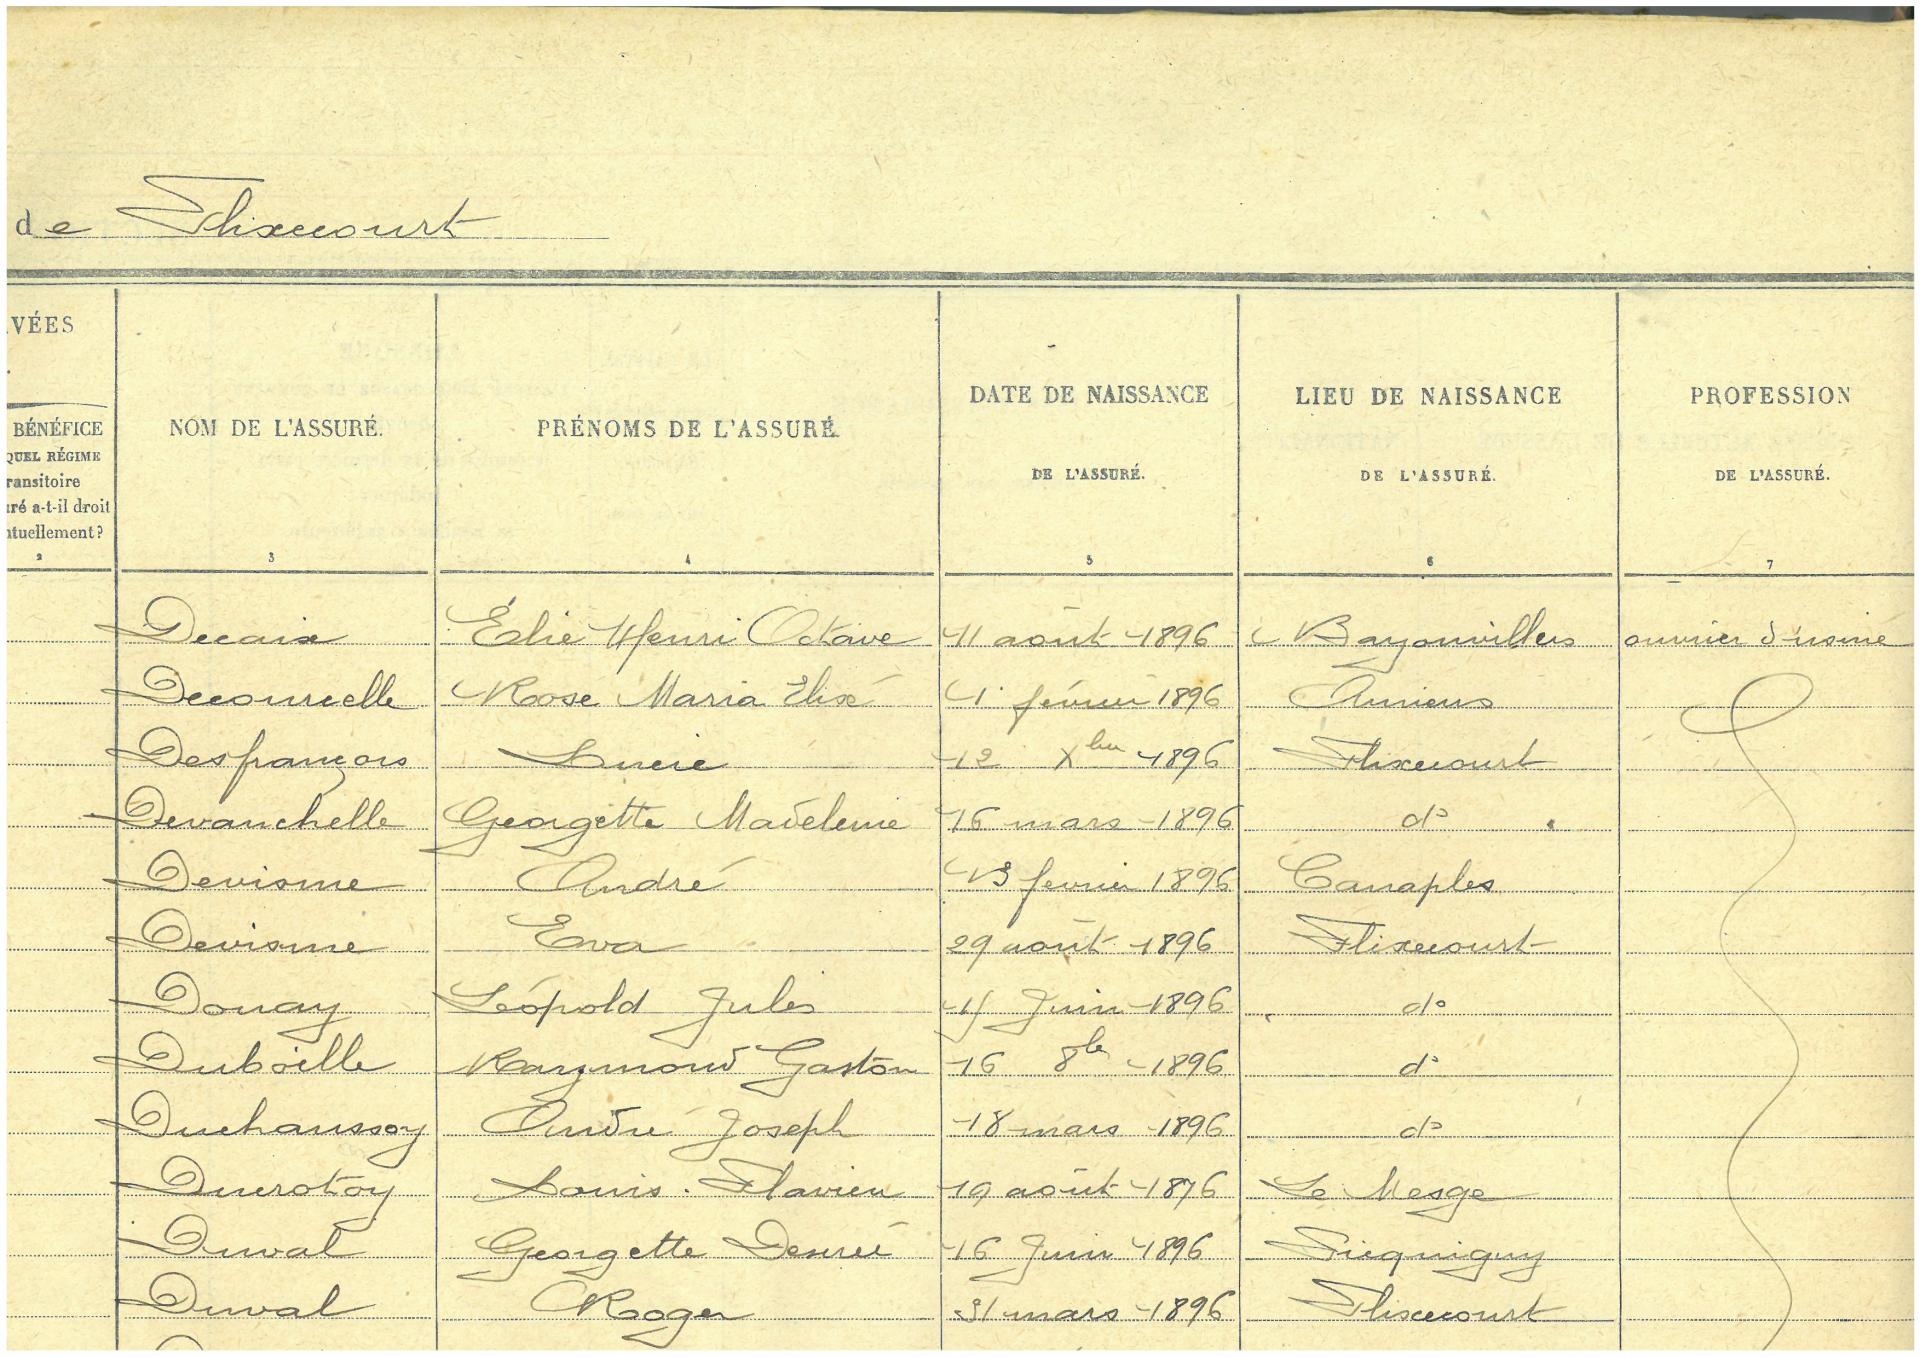 de Flixecourt
VÉES
BÉNÉFICE
QUEL RÉGIME
ransitoire
uré a-t-il droit
ntuellement?
2
NOM DE L'ASSURÉ.
3
PRÉNOMS DE L'ASSURÉ.
4
DATE DE NAISSANCE
DE L'ASSURÉ.
5
LIEU DE NAISSANCE
DE L'ASSURÉ.
6
PROFESSION
DE L'ASSURÉ.
7
Decaix Élie Henri Octave 11 août 1896 Bayonvillers ouvrier d'usine
Decourcelle Rose Maria Elisé 1 février 1896 Amiens
Desfrançois Lucie 12 Xbre 1896 Flixecourt
Devauchelle Georgette Madeleine 16 mars 1896 do
Devisme André 13 février 1896 Canaples
Devisme Eva 29 août 1896 Flixecourt
Douay Léopold Jules Juin 1896 do
Duboille Raymond Gaston 16 8bre 1896 do
Duchaussoy André Joseph 18 mars 1896 do
Ducrotoy Louis Flavien 19 août 1896 Le Mesge
Duval Georgette Desiré 16 Juin 1896 Picquigny
Duval Roger 31 mars 1896 Flixecourt